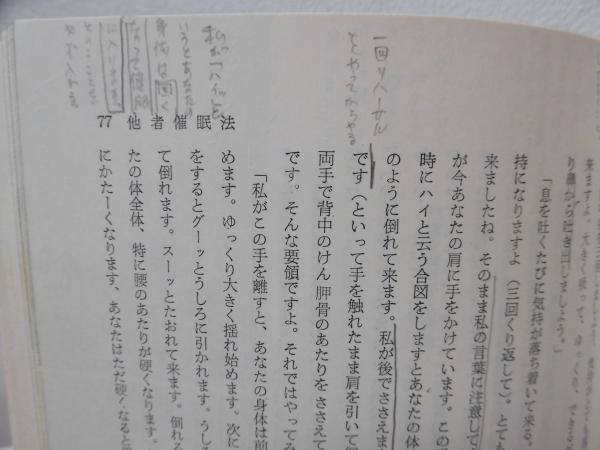 来ますよ。大きく吸って、ゆっくり、できる
り鼻から吐き出しましょう。」
「息を吐くたびに気持が落ち着いて来る。
持になりますよ（三回くり返して）。とても
来ましたね。そのまま私の言葉に注意して
が今あなたの肩に手をかけています。この
時にハイと云う合図をしますとあなたの体
のように倒れて来ます。私が後でささえま
です（といって手を触れたまま肩を引いて
両手で背中のけん胛骨のあたりをささえて
です。そんな要領ですよ。それではやってみ
「私がこの手を離すと、あなたの身体は前
めます。ゆっくり大きく揺れ始めます。次に
をするとグーッとうしろに引かれます。うし
て倒れます。スーッとたおれて来ます。倒れる
たの体全体、特に腰のあたりが硬くなります。
にかたーくなります、あなたはただ硬くなると
77 他者催眠法
一回リハーサル
をやってからやる
私が「ハイッ」と
いうとあなたの
身体は固く
なって催眠
に入ります。